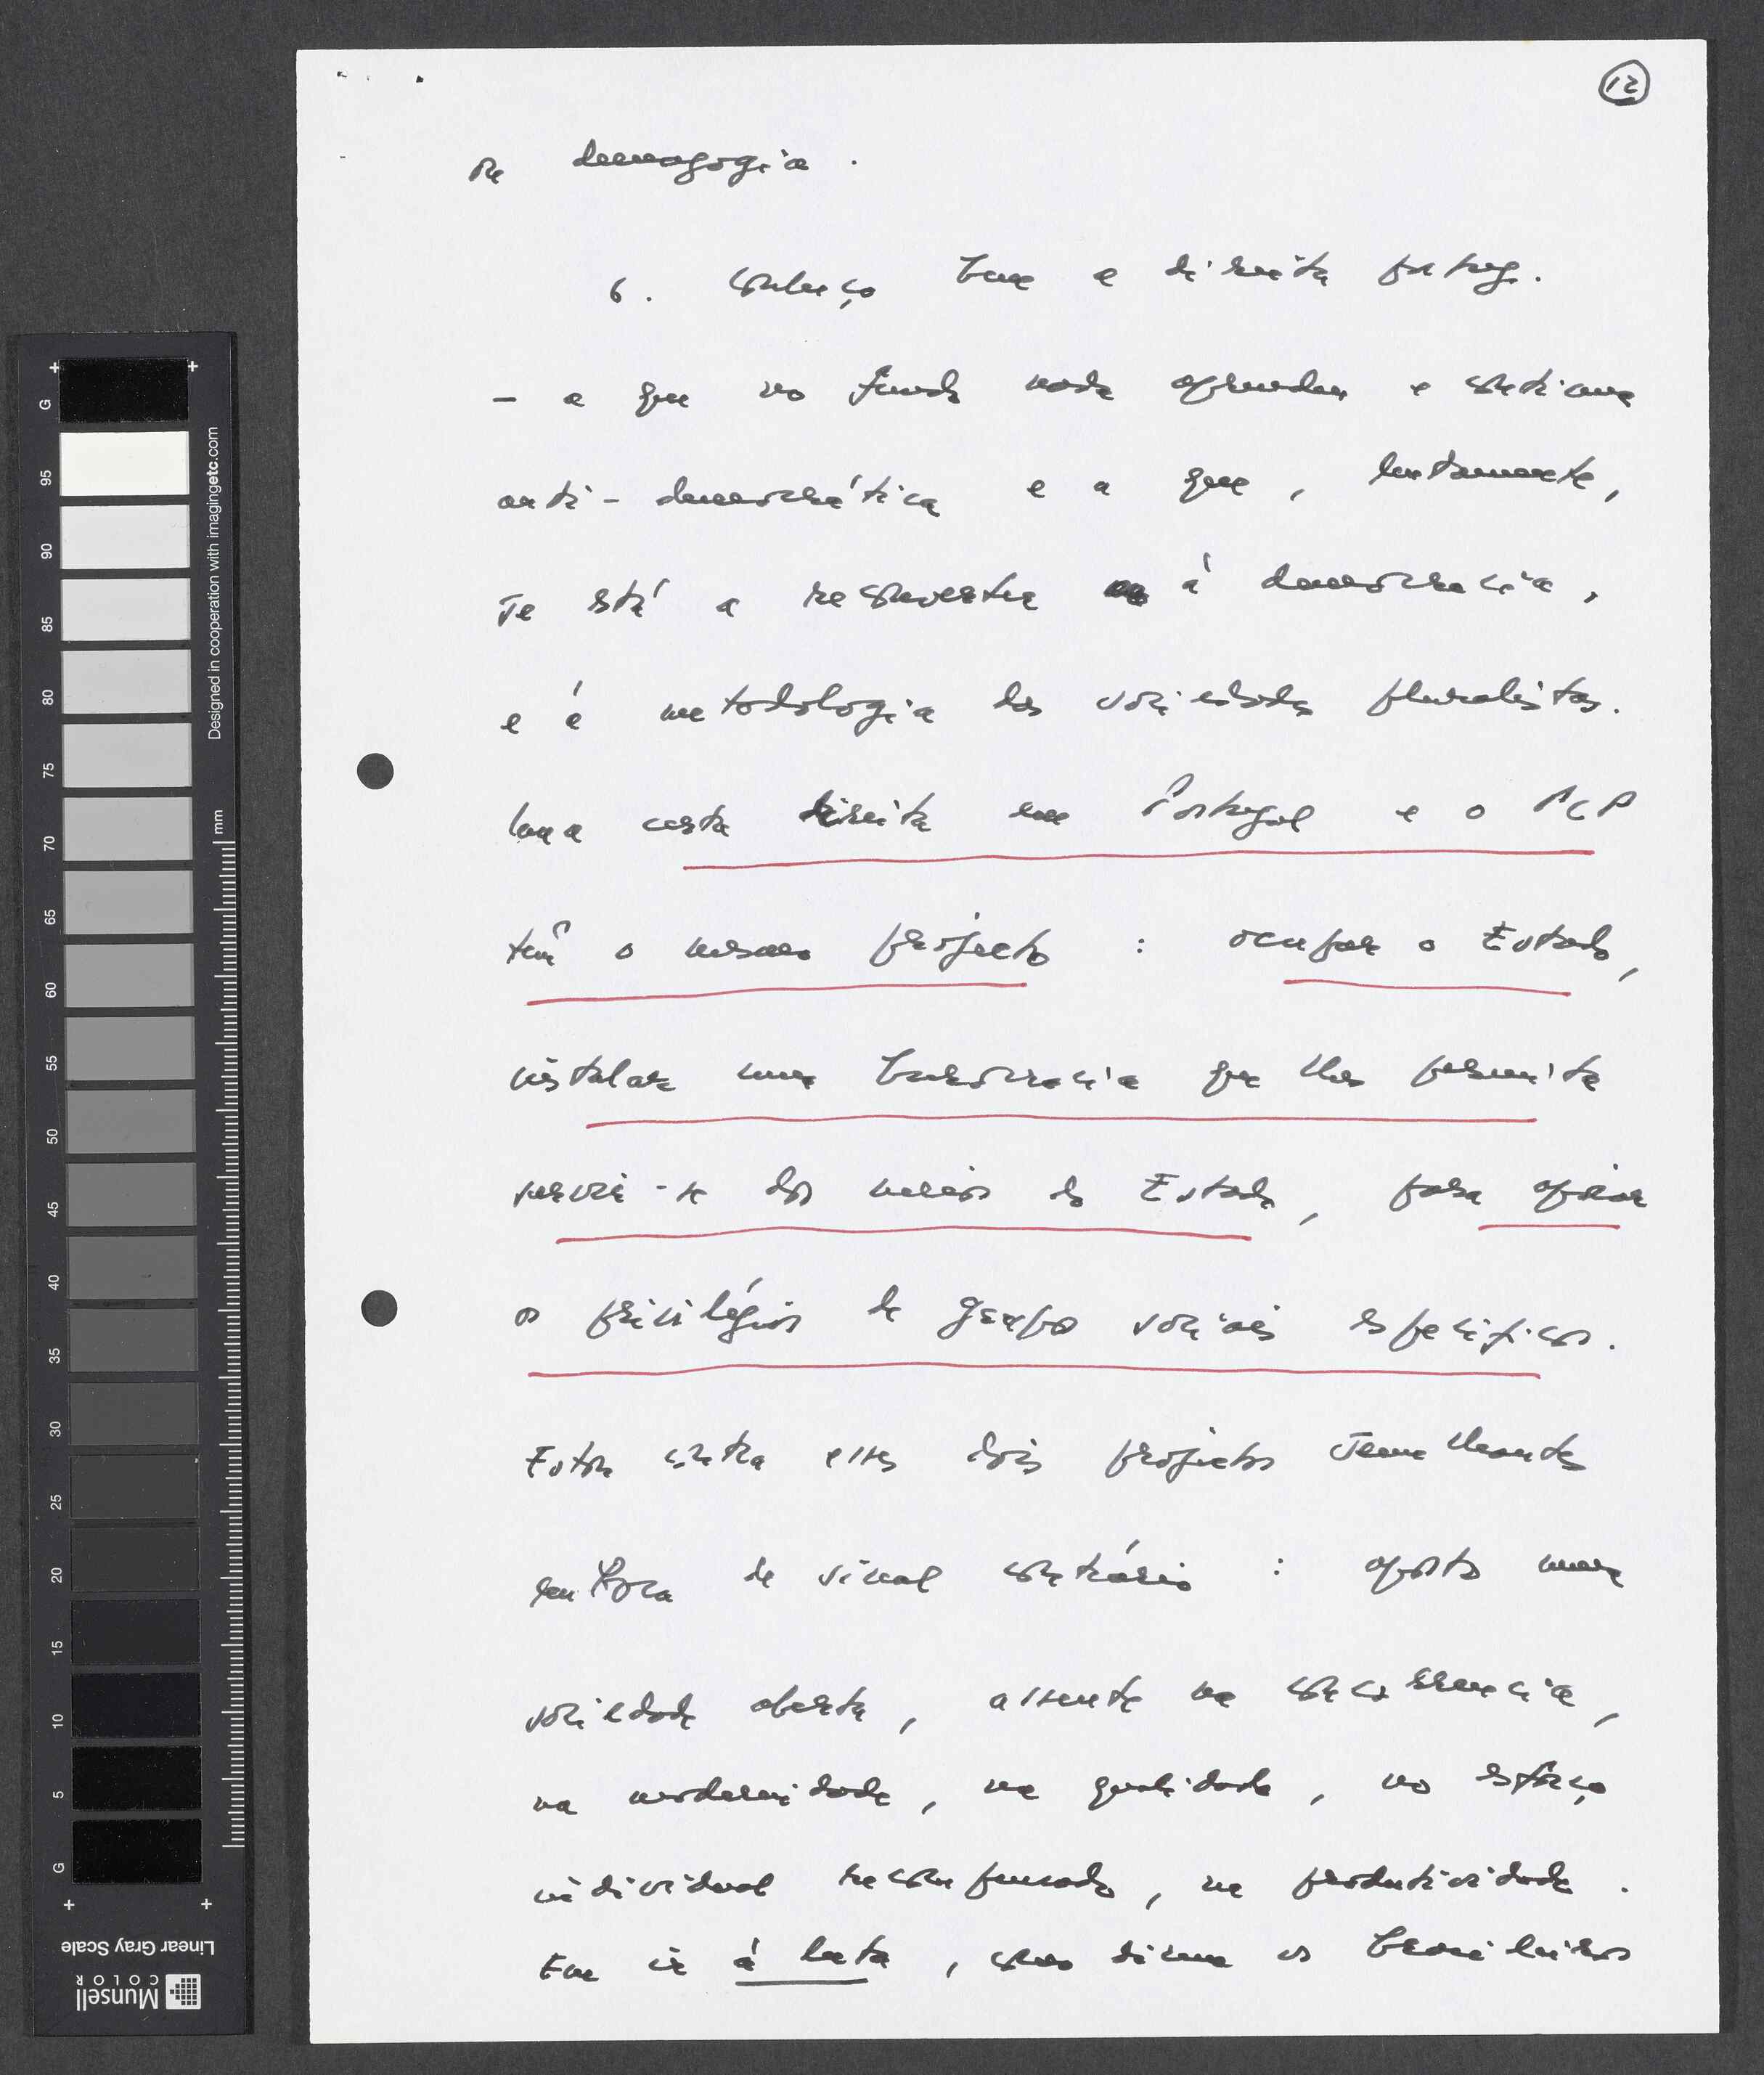 12
de demagogia.
6. Conheço bem a direita portug.
- a que no fundo nada aprendeu e continua
anti-democrática e a que, lentamente,
se está a reconverter à democracia,
e à metodologia das sociedades pluralistas.
uma certa direita em Portugal e o PCP
têm o mesmo projecto : ocupar o Estado,
instalar uma burocracia que lhes permita
servir-se dos meios do Estado, para apoiar
os privilégios de grupos sociais específicos.
Estou contra esses dois projectos semelhantes
embora de sinal contrário : aposto numa
sociedade aberta, assente na concorrência,
na modernidade, na qualidade, no esforço
individual recompensado, na produtividade.
Em ir à luta, como dizem os brasileiros
G 95 90 85 80 75 70 65 60 55 50 45 40 35 30 25 20 15 10 5 G
Designed in cooperation with imagingetc.com
mm
Linear Gray Scale
Munsell
COLOR